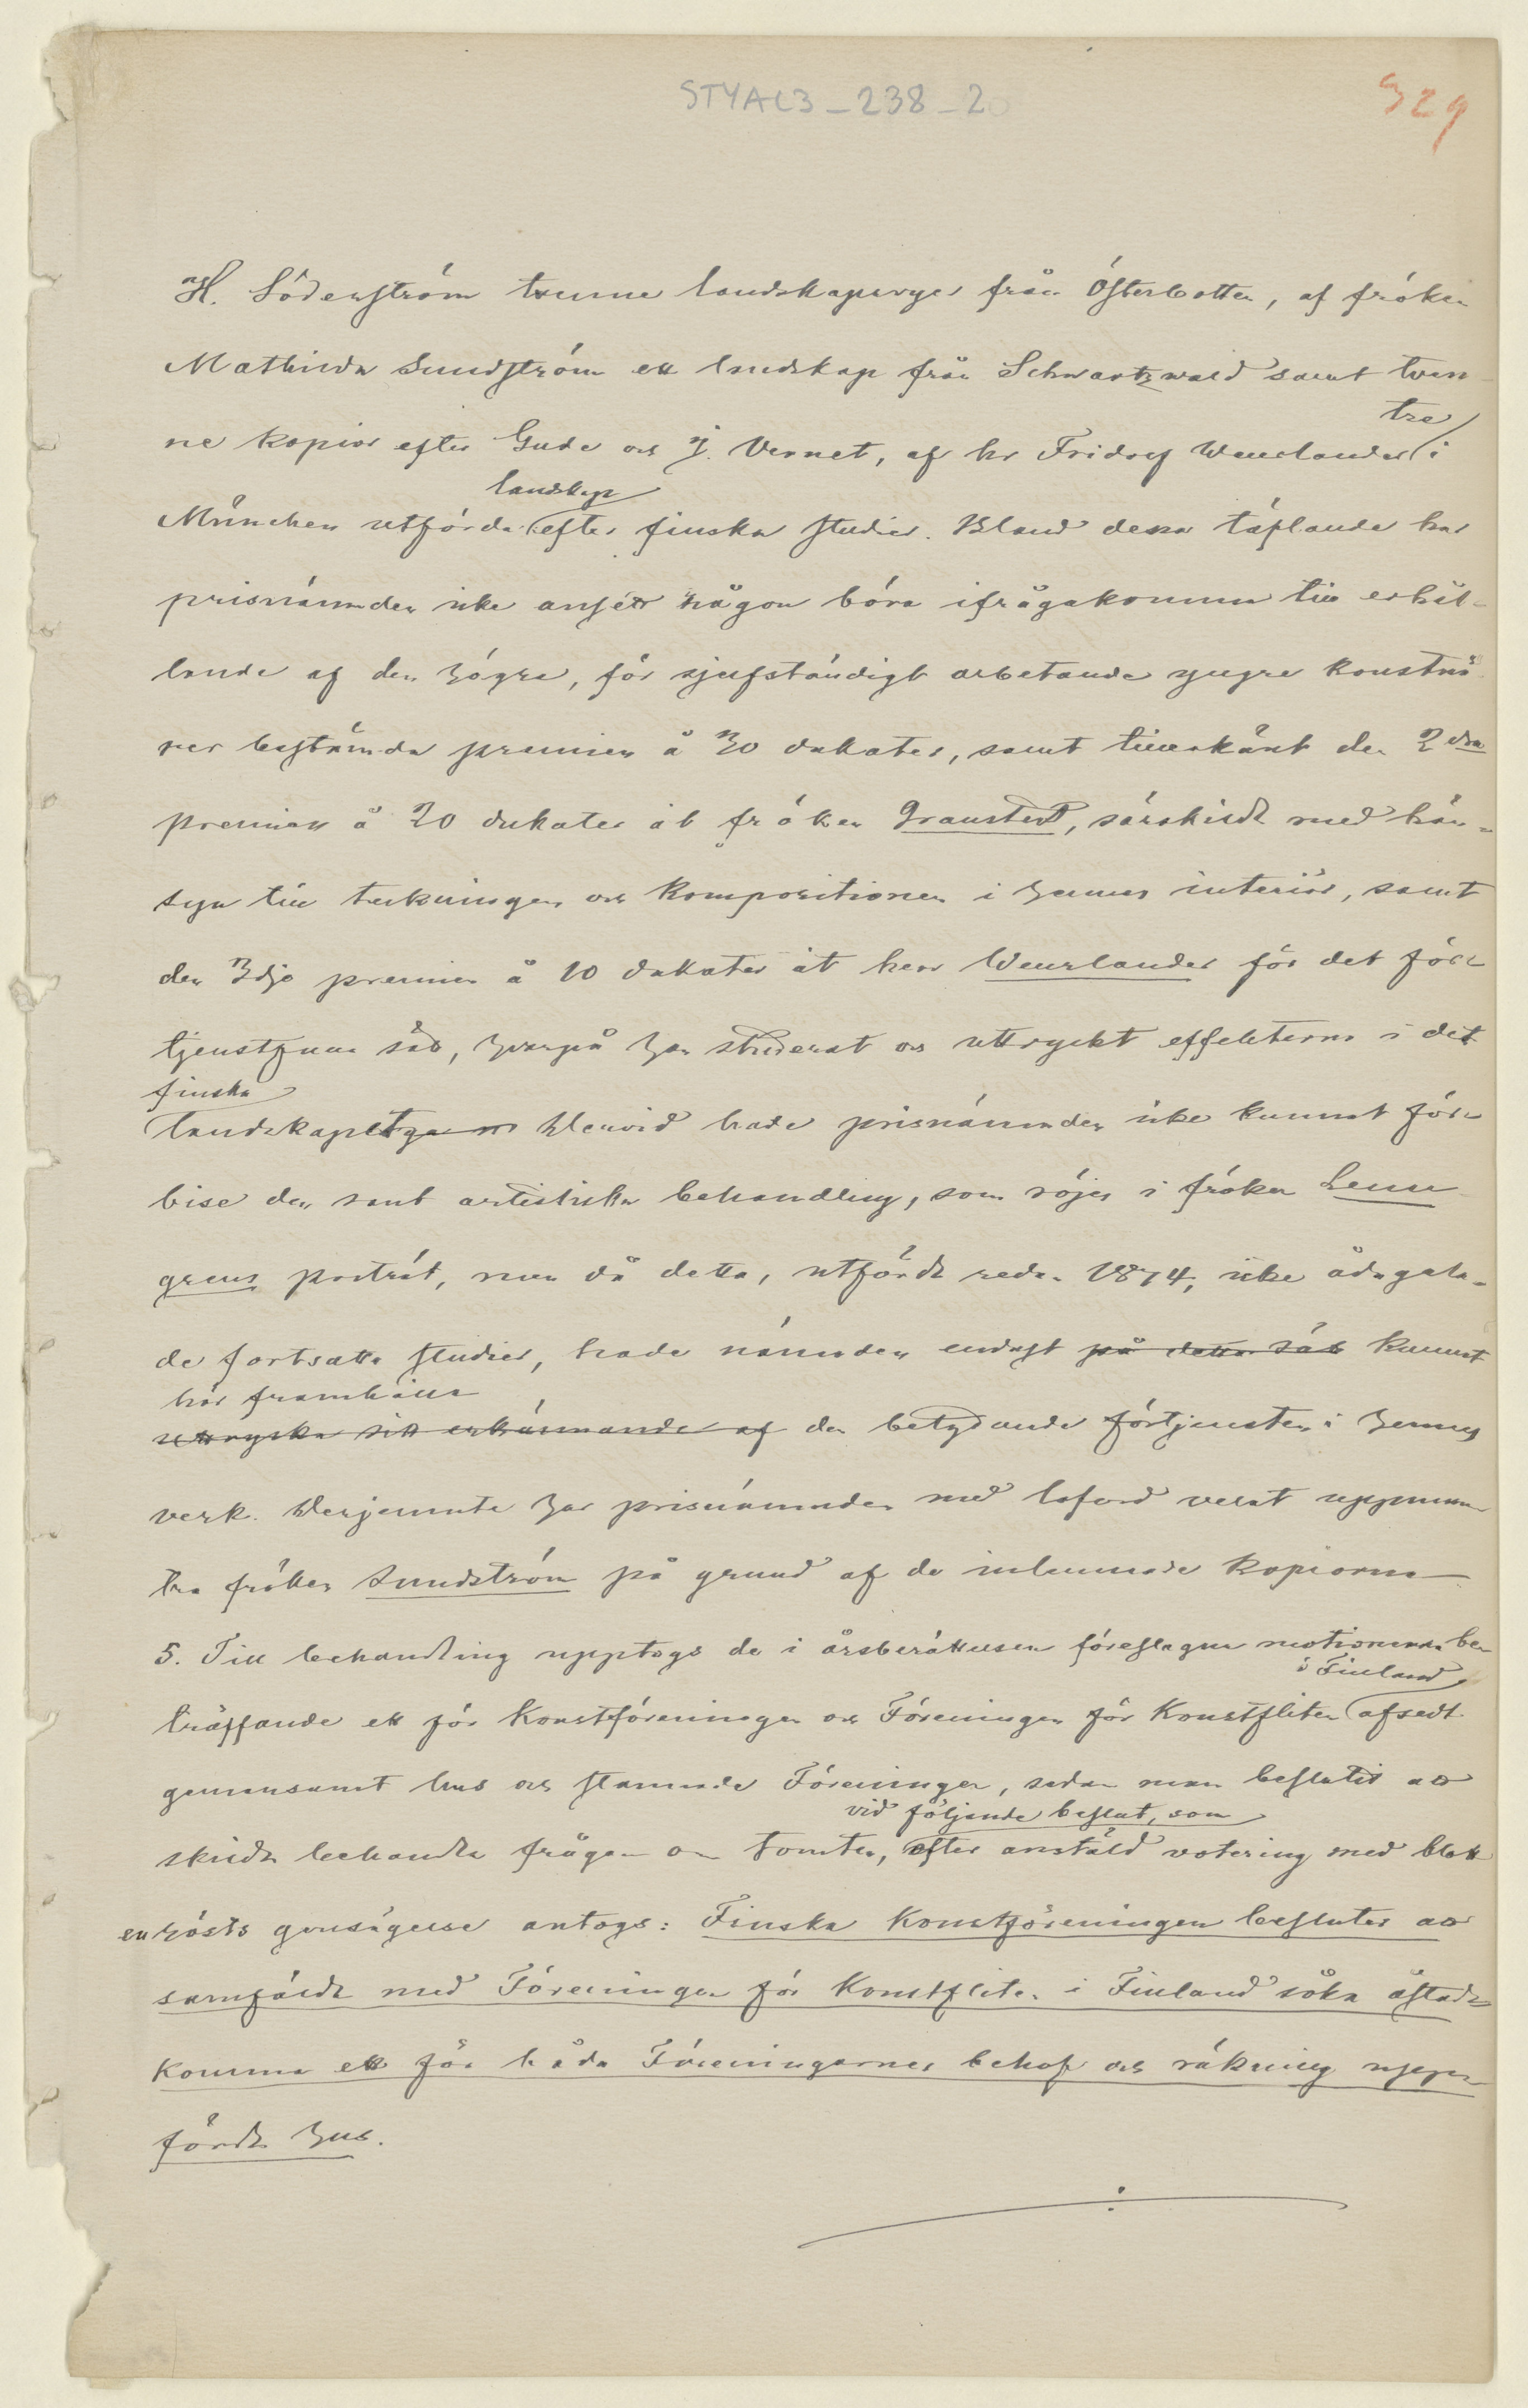 STYAL3_238_2
329
H. Söderström tvenne landskapsvyer från Österbotten, af fröken
Mathilda Sundström ett landskap från Schwartzwald samt tven
tre
ne kopior efter Gude och J. Vernet, af hr Fridolf Weurlander i
landskap
München utförda efter finska studier. Bland dessa täflande har
prisnämnden icke ansett någon böra ifrågakomma till erhål-
lande af den högre, för sjelfständigt arbetande yngre konstnä
rer bestämda premien à 30 dukater, samt tillerkänt den 2dra
premien à 20 dukater åt fröken Granstedt, särskildt med hän-
syn till teckningen och kompositionen i hennes interiör, samt
den 3dje premien à 10 dukater åt herr Weurlander för det för-
tjenstfulla sätt, hvarpå han studerat och uttryckt effekterna i det
finska
landskapet Dervid hade prisnämnden icke kunnat för-
bise den sant artistiska behandling, som röjes i fröken Lenn
grens porträt, men då detta, utfördt redan 1874, icke ådagala-
de fortsatta studier, hade nämnden endast på detta sätt kunnat
här framhålla
uttrycka sitt erkännande af den betydande förtjensten i hennes
verk. Derjemnte har prisnämnden med loford velat uppmun
tra fröken Sundström på grund af de inlemnade kopiorna
5. Till behandling upptogs de i årsberättelsen föreslagna motionerna be-
i Finland
träffande ett för Konstföreningen och Föreningen för Konstfliten afsedt
gemensamt hus och stannade Föreningen, sedan man beslutit att
vid följande beslut, som
skildt behandla frågan om tomten, efter anstäld votering med blott
en rösts gensägelse antogs: Finska Konstföreningen besluter att
samfäldt med Föreningen för Konstfliten i Finland söka åstad-
komma ett för båda Föreningarnes behof och räkning upp-
fördt hus.